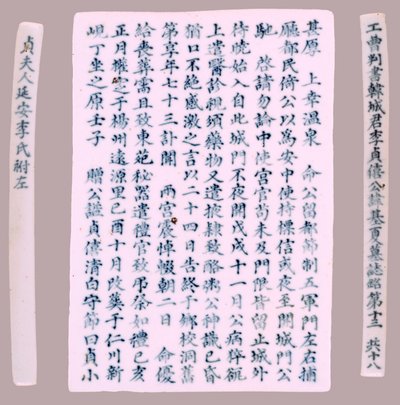 工曹判書韓城君李貞僖公諱基夏墓誌銘第十三 共十八
甚厚 上幸溫泉 命公留都節制五軍門左右捕
廳都民倚公以為安中使持標信或夜至開城門公
馳 啓請勿論中使宦官苟未及門限皆留止城外
待曉始入自此城門不夜開戊戌十一月公病猝
上遣醫診視頒藥物又遣掖隸致酪粥公神識已昏
猶口不絶感激之言以二十四日告終于鄕校洞舊
第享年七十三訃聞 兩宮震悼輟朝二日 命優
給喪葬需且致東苑秘器遣禮官致吊祭如禮己亥
正月權窆于楊州遠源里己酉十月改葬于仁川新
峴丁坐之原壬子 贈公謚貞僖清白守節曰貞小
貞夫人延安李氏祔左